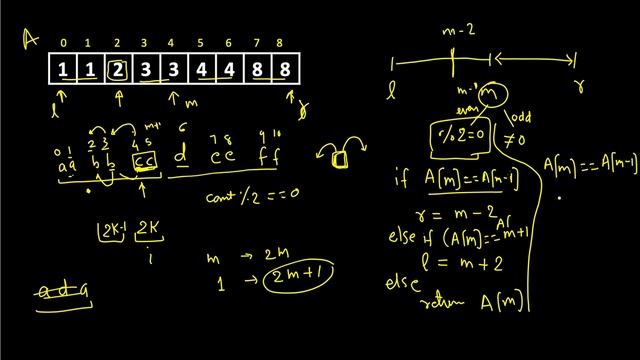 A
0 1 2 3 4 5 6 7 8
1 1 2 3 3 4 4 8 8
l m r
0 1 2 3 4 5 m+1 6 7 8 9 10
a a b b c c d e e f f
count %2 == 0
2K-1 2K
i
m → 2m
1 → 2m+1
a d a
m-2
l r
m-1 m
even odd
%2=0 ≠0
if A[m]==A[m-1]
r = m-2
else if (A[m]==A[m+1
l = m+2
else
return A[m]
A[m]==A[m-1]